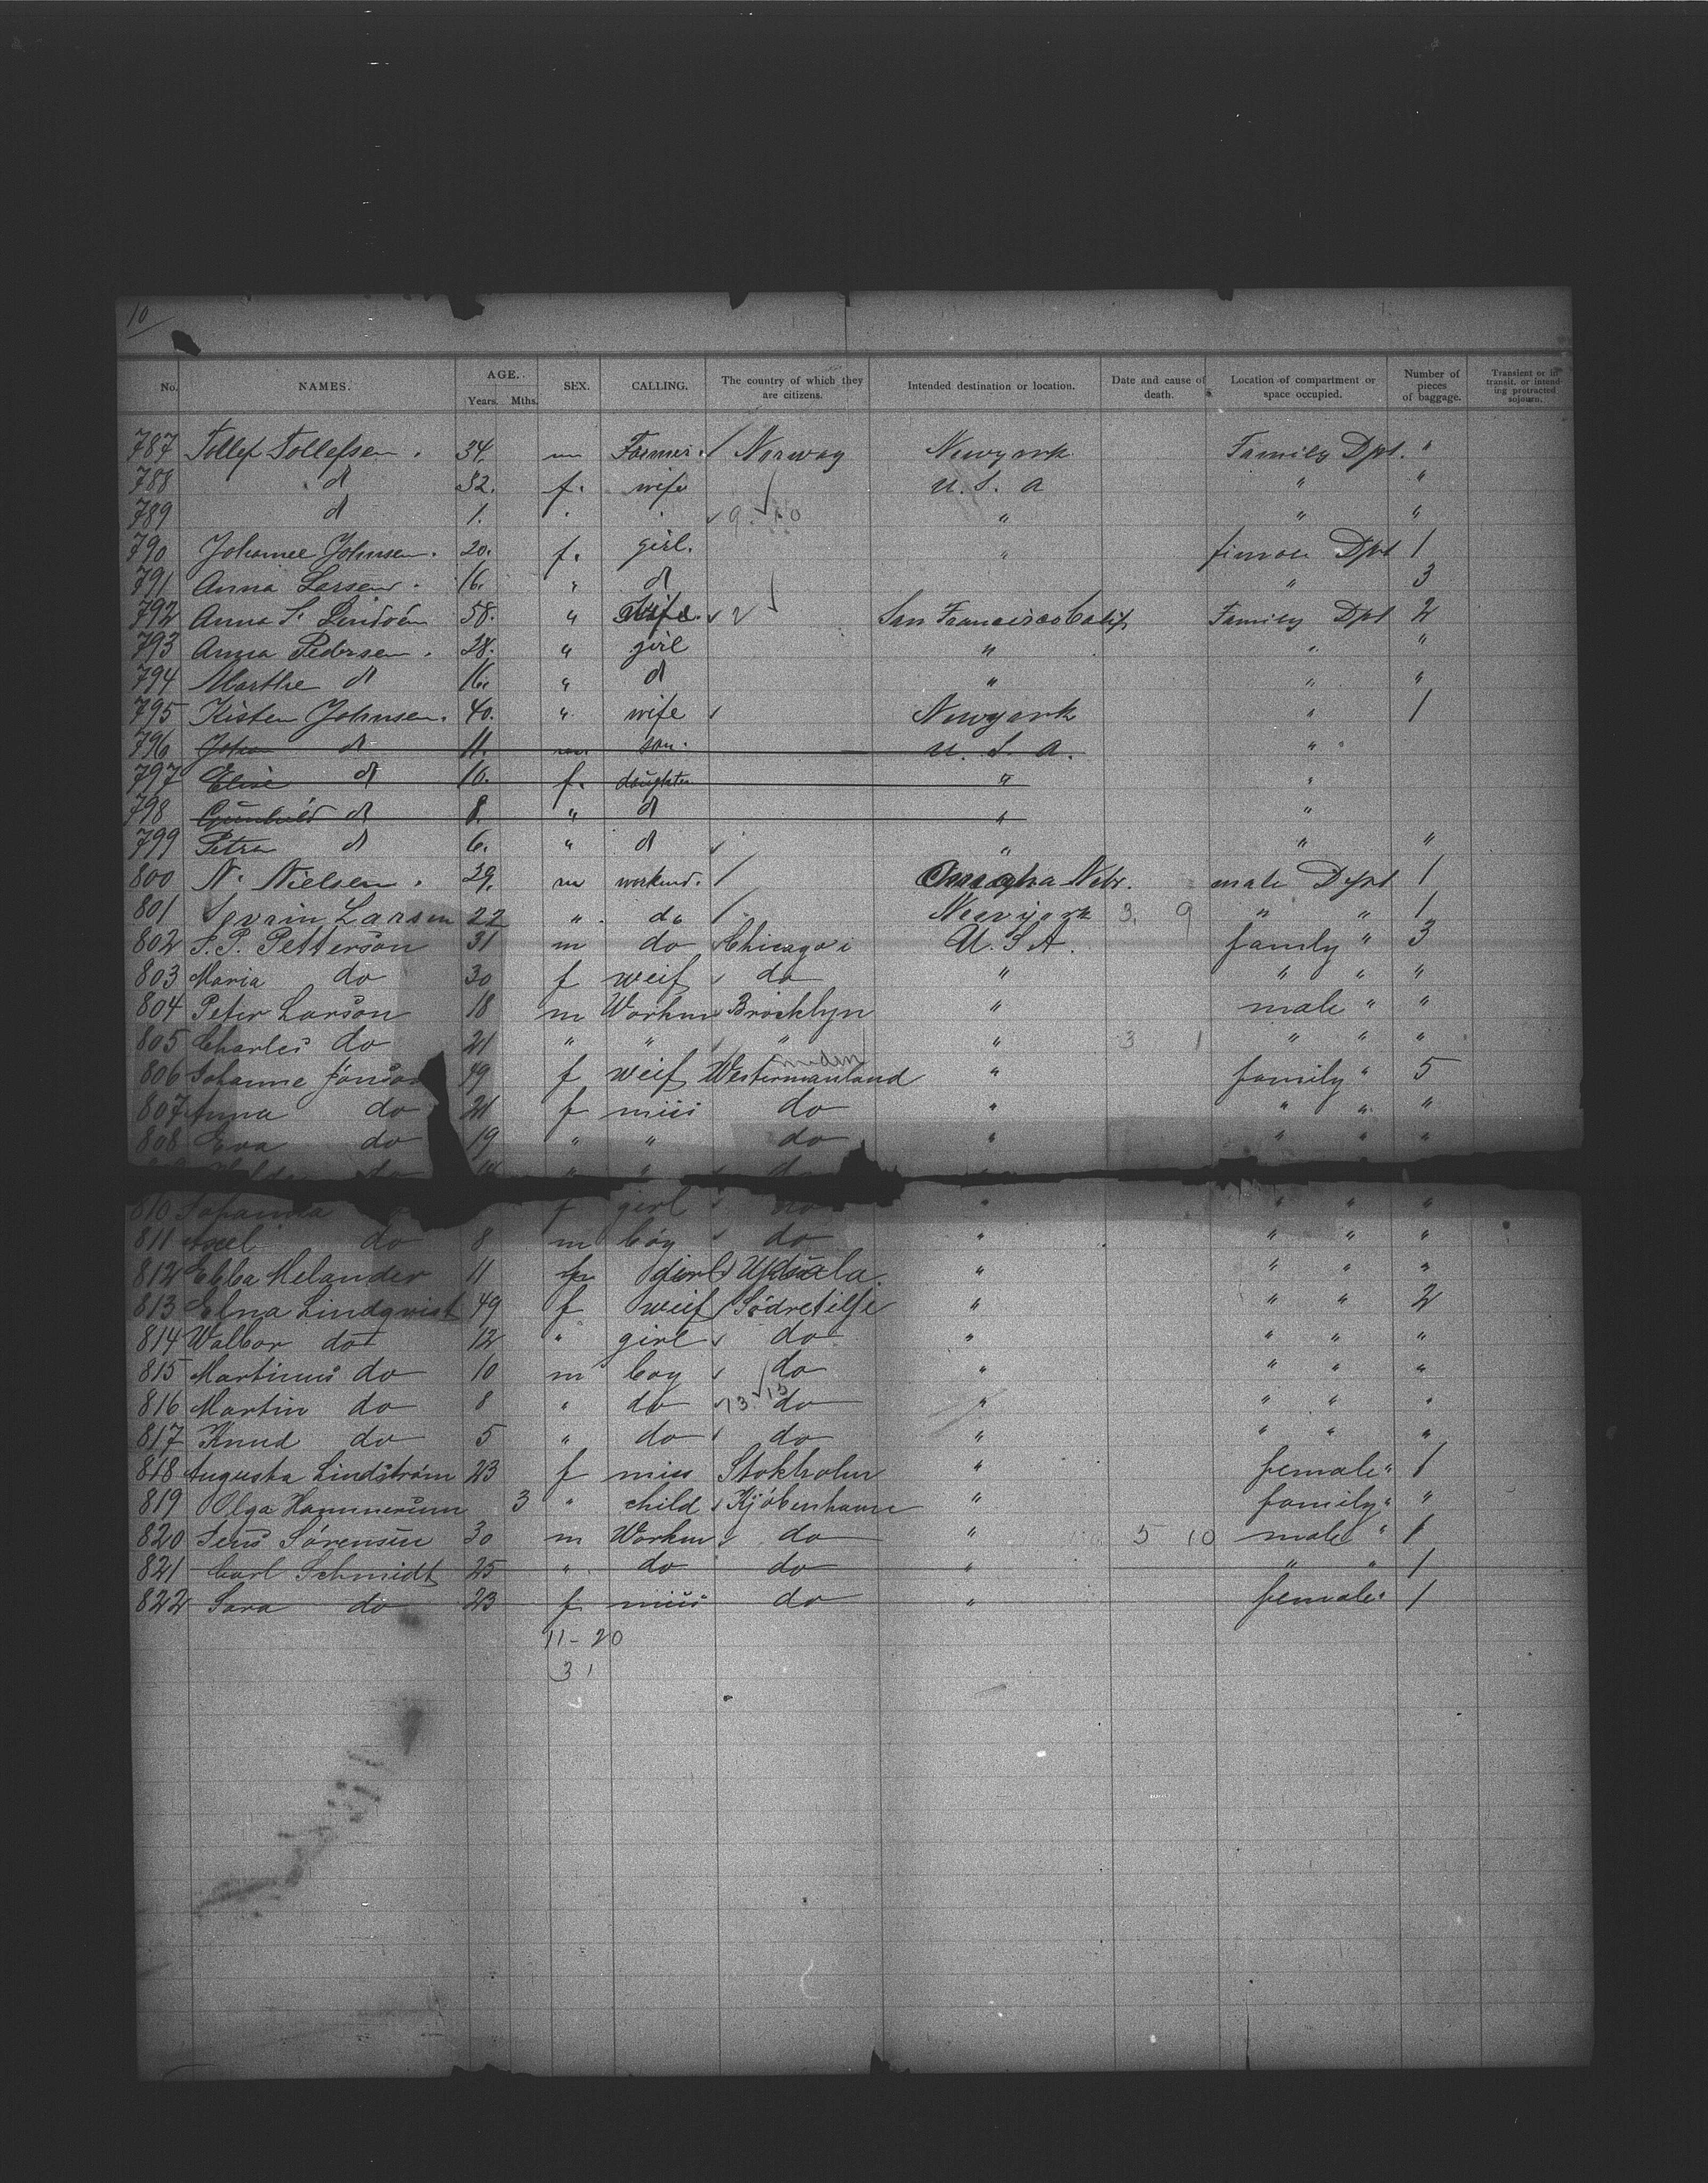 10
No. NAMES. AGE. Years. Mths. SEX. CALLING. The country of which they are citizens. Intended destination or location. Date and cause of death. Location of compartment or space occupied. Number of pieces of baggage. Transient or in transit, or intending protracted sojourn.
787 Tollef Tollefsen. 34. m Farmer. / Norway Newyork Family Dpt. "
788 d 32. f. wife U. S. A " "
789 d 1. " "  "
790 Johanne Johnsen. 20. f. girl. " Dpt 1
791 Anna Larsen. 16. " d " 3
792 Anna S. 58. " wife. San Francisco Calif Family Dpt 2
793 Anna Pedersen. 28. " girl " " "
794 Marthe d 16. " d " " "
795 Kisten Johnsen. 40. " wife Newyork " 1
796 John d 11. m. son. U. S. A. "
797 Elise d 10. f. daughter " "
798 Gunhild d 8. " d " "
799 Petra d 6. " d " " "
800 N. Nielsen. 29. m workmd. / Omagha Nebr. male Dept 1
801 Sevrin Larsen 22 " do / Newyork 3. 9 " " 1
802 S. P. Petterson 31 m do Chicago i U. S A. family " 3
803 Maria do 30 f weif do " " " "
804 Peter Larson 18 m Workm Brocklyn " male " "
805 Charles do 21 " " " " 3 1 " " "
806 Johanne Jonson 49 f weif Westermanland " family " 5
807 Anna do 21 f miss do " " " "
808 Eva do 19 " " do " " " "
do " " do
810 Johanna f girl do " " " "
811 Axel do 8 m boy do " " " "
812 Ebba Melander 11 girl Udsala. " " " "
813 Elna Lindqvist 49 f weif Södretilje " " " 2
814 Walbor do 12 " girl do " " " "
815 Martinus do 10 m boy do " " " "
816 Martin do 8 " do 13 13 do " " " "
817 Knud do 5 " do do " " " "
818 Augusta Lindström 23 f miss Stokholm " female " 1
819 Olga Hammersum 3 " child Kjöbenhavn " family " "
820 Jens Sörensen 30 m Workm do " 5 10 male " 1
821 Carl Schmidt 25 " do do " " " 1
822 Sara do 23 f miss do " female " 1
11 - 20
31